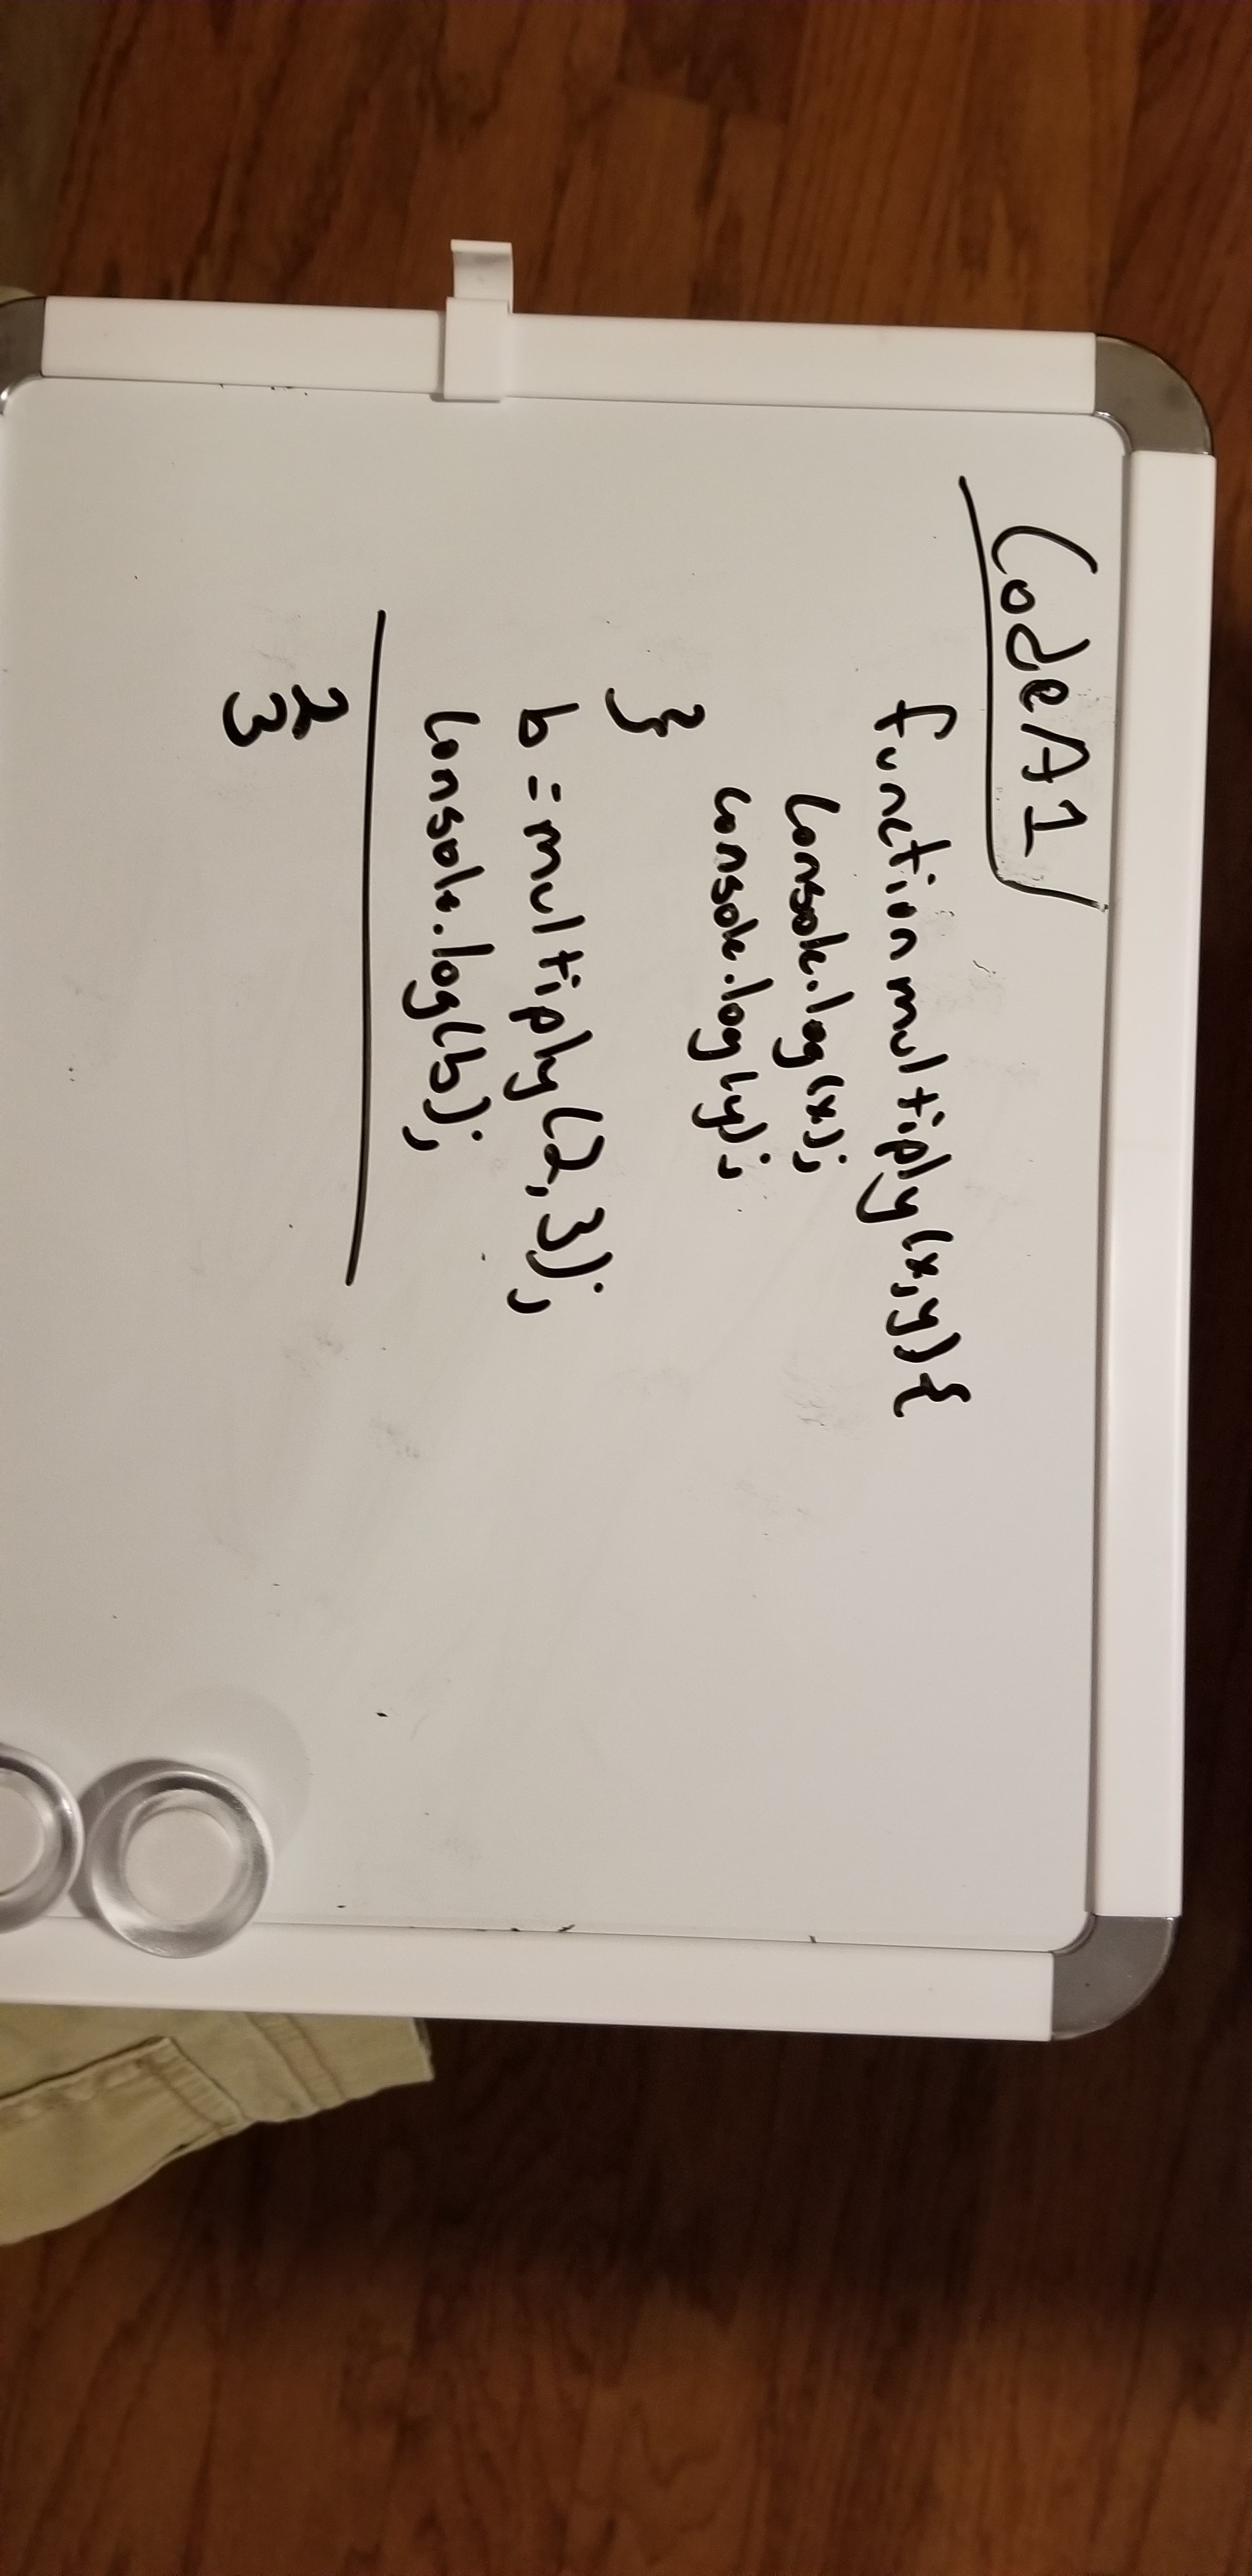 Code A1
function multiply(x,y){
console.log(x);
console.log(y);
}
b = multiply(2,3);
console.log(b);
2
3